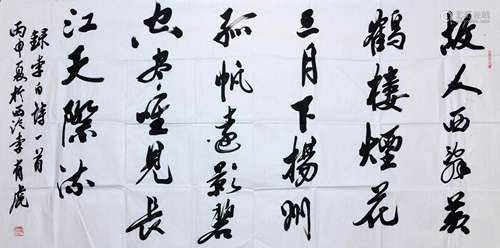 故人西辭黄
鶴樓煙花
三月下揚州
孤帆遠影碧
空尽唯見長
江天際流
録李白诗一首
丙申夏於西李肖虎